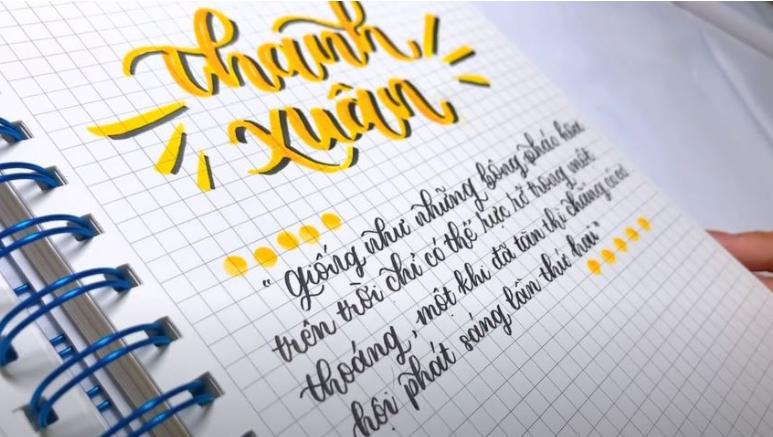 thanh
xuân
" giống như những bông pháo hoa
trên trời chỉ có thể rực rỡ trong một
thoáng, một khi đã tàn thì chẳng có cơ
hội phát sáng lần thứ hai "